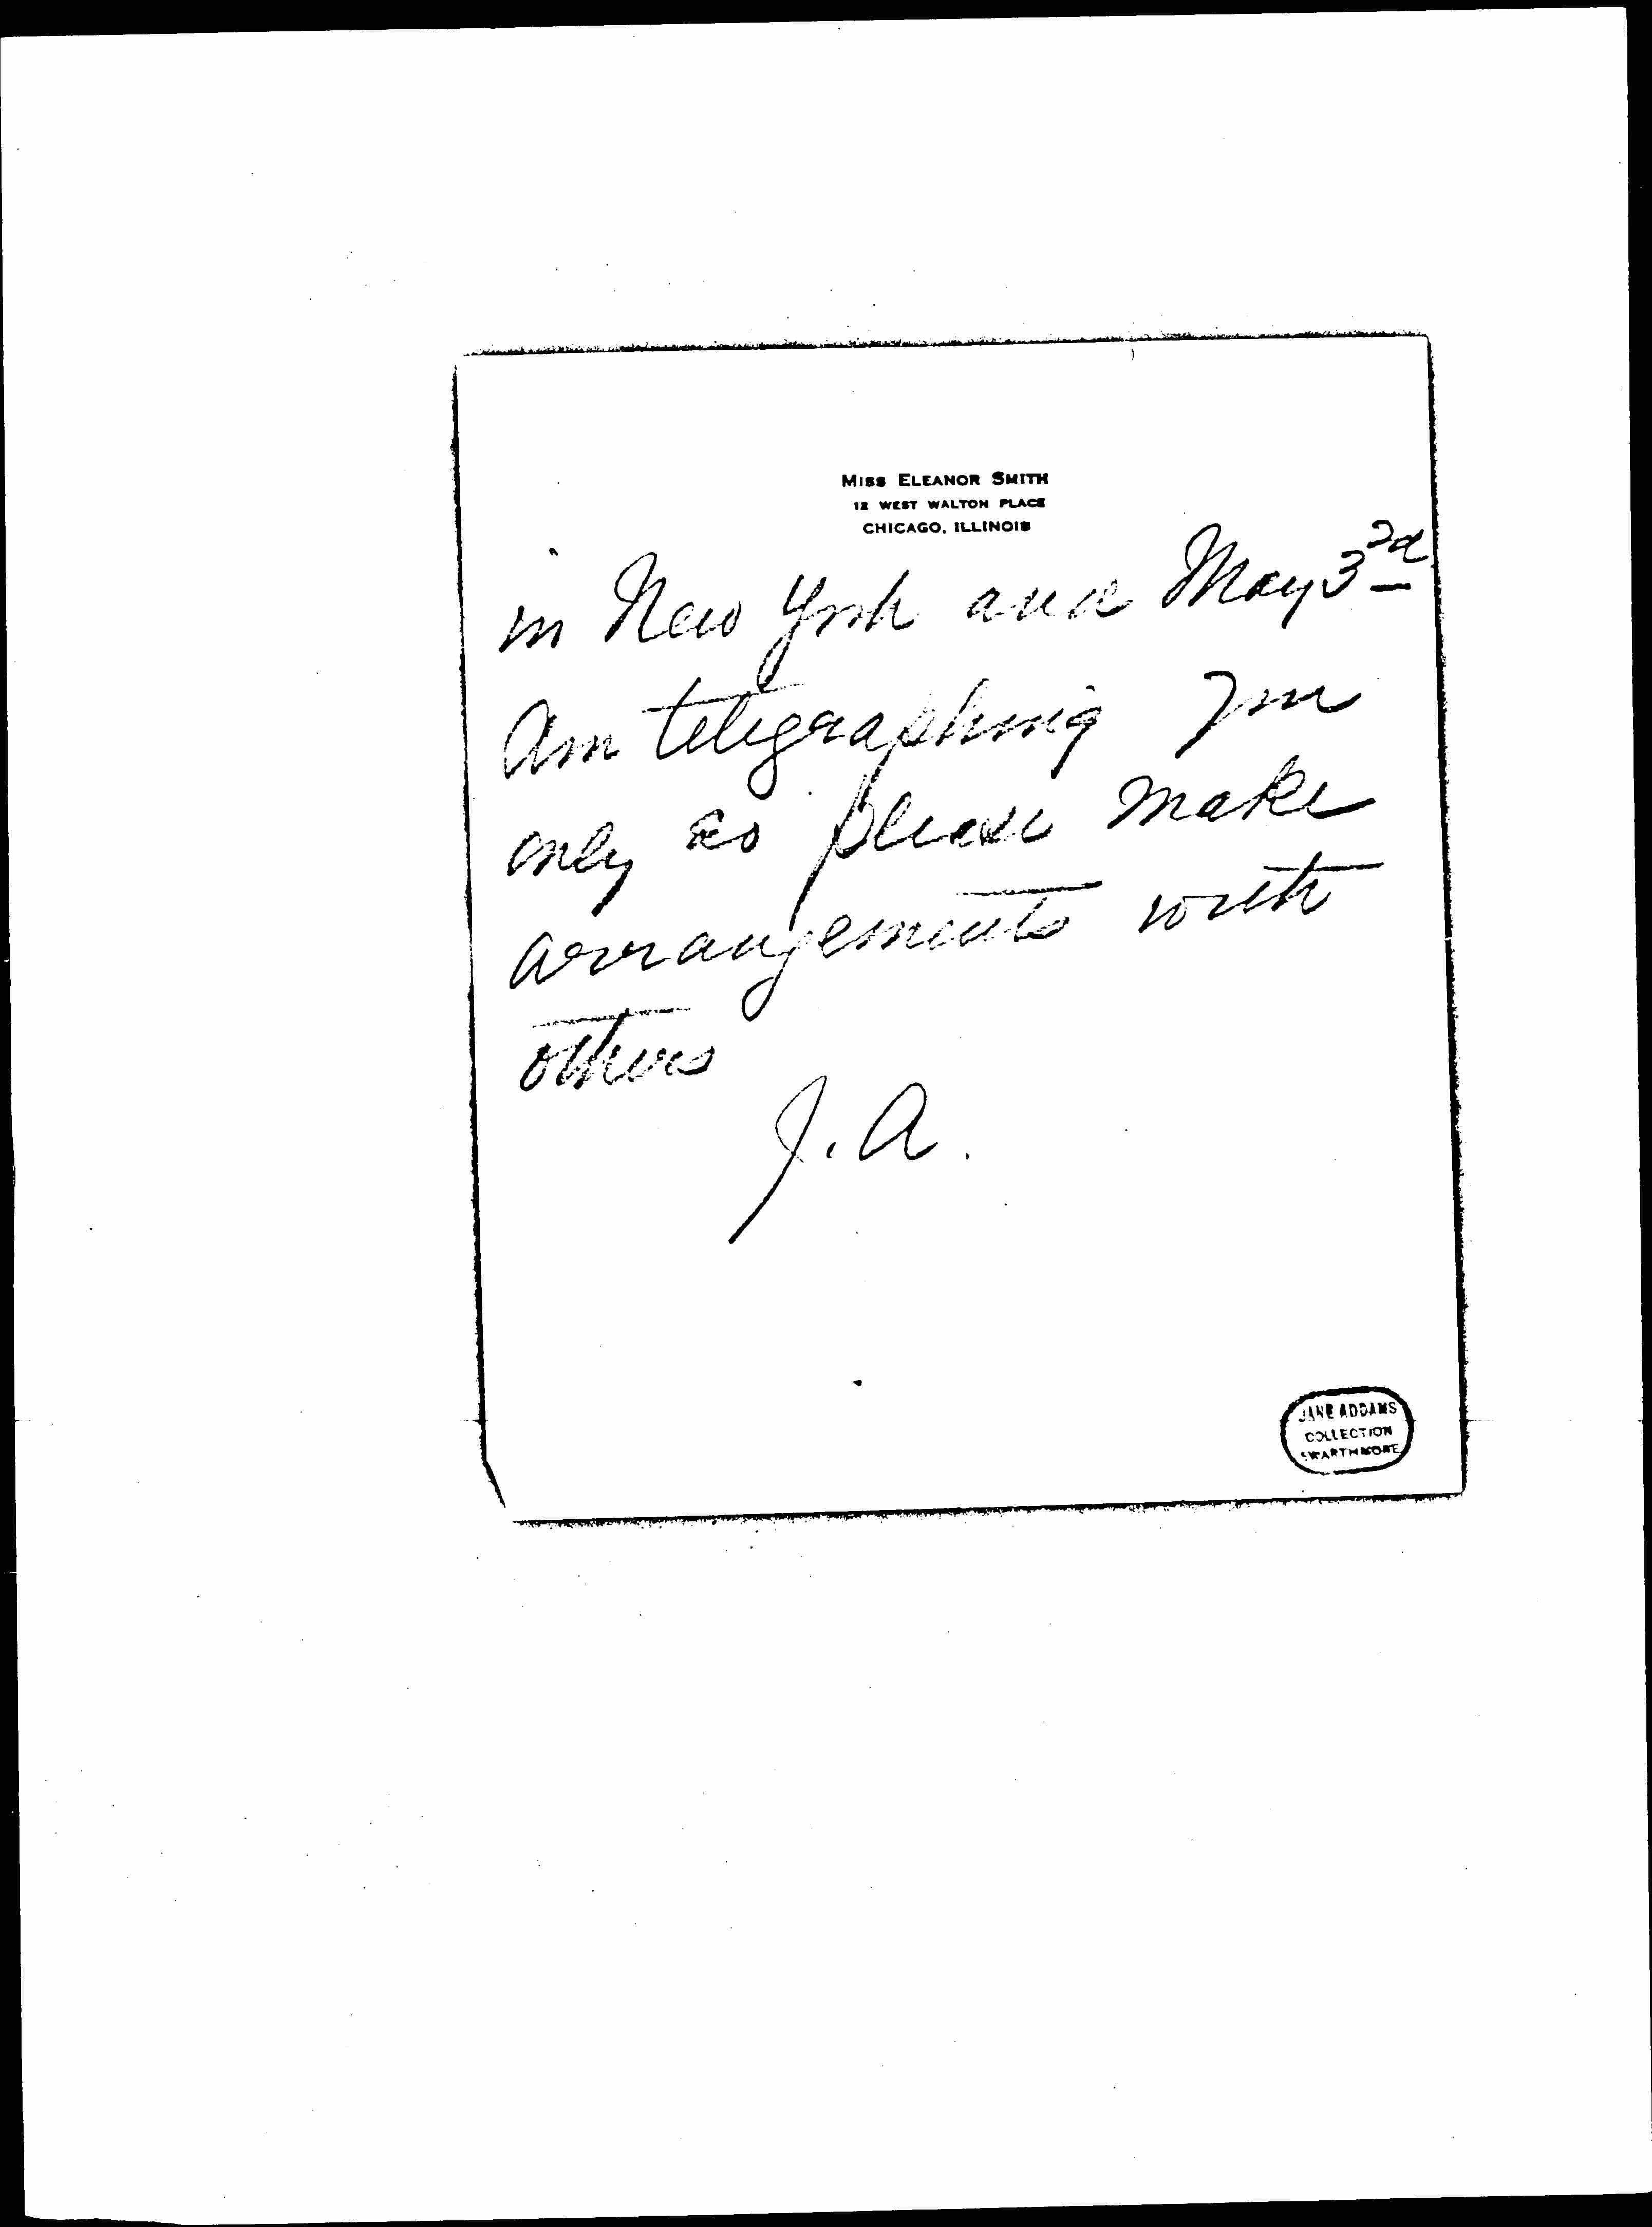 MISS ELEANOR SMITH
12 WEST WALTON PLACE
CHICAGO, ILLINOIS
in New York and May 3rd
Am telegraphing you
only so please make
arrangements with
others
J. A.
JANE ADDAMS
COLLECTION
SWARTHMORE